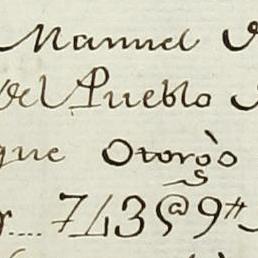 Manuel
del Pueblo
que Otorgò
743@9